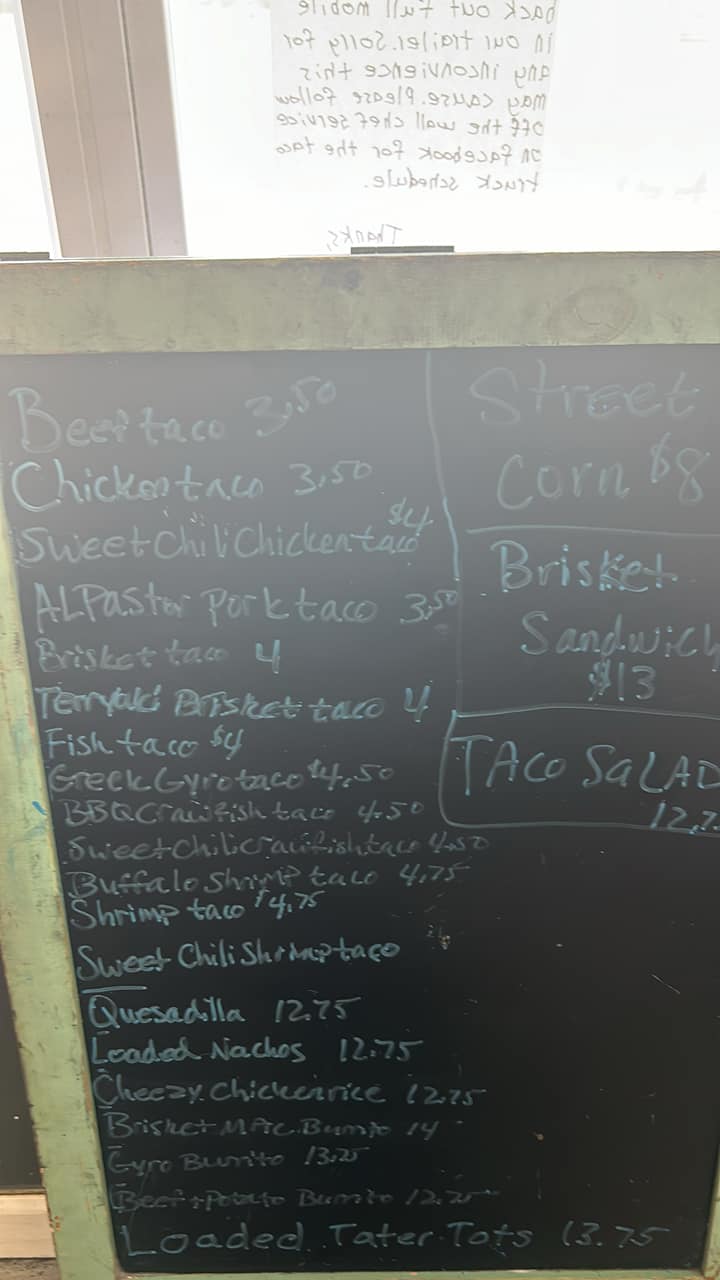 back out full mobile
in our trailer. Sorry for
any inconvienence this
may cause. Please follow
off the wall chef service
on facebook for the taco
truck schedule.
Thanks,
Beef taco 3.50
Chicken taco 3.50
Sweet Chili Chicken taco $4
ALPastor Pork taco 3.50
Brisket taco 4
Terryaki Brisket taco 4
Fish taco $4
Greek Gyro taco $4.50
BBQ Crawfish taco 4.50
Sweet chili crawfish taco 4.50
Buffalo Shrimp taco 4.75
Shrimp taco $4.75
Sweet Chili Shrimp taco
Quesadilla 12.75
Loaded Nachos 12.75
Cheezy Chicken rice 12.75
Brisket MAC Burrito 14
Gyro Burrito 13.25
Beef + Potato Burrito
Loaded Tater Tots 13.75
Street
Corn $8
Brisket
Sandwich
$13
TACO SALAD